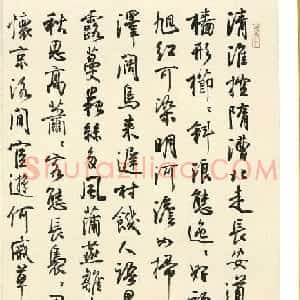 清淮控隋漕北走長安道
檣形櫛〻斜浪態迤〻好初
旭紅可染明河澹如掃
澤闊鳥来遲村饑人語早
露蔓蟲絲多風蒲燕雛
秋思高蕭〻客態長裊〻因
懷京洛間宦遊何戚草
Shufaziliao.com